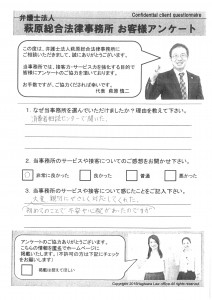 弁護士法人
Confidential client questionnaire
萩原総合法律事務所 お客様アンケート
この度は、弁護士法人萩原総合法律事務所に
ご相談いただきまして、誠にありがとうございます。
当事務所では、接客力・サービス力を強化する目的で
皆様にアンケートのご協力を頂いております。
お手数ですが、ご協力くだされば幸いです。
代表 萩原 慎二
1. なぜ当事務所を選んでいただけましたか？理由を教えて下さい。
消費者相談センターで聞いた。
2. 当事務所のサービスや接客についてのご感想をお聞かせ下さい。
非常に良かった
良かった
普通
悪かった
3. 当事務所のサービスや接客について感じたことをご記入下さい。
大変 親切にやさしく対応してくれた。
初めてのことで 不安や心配があったのですが
アンケートのご協力ありがとうございます。
こちらの情報を匿名でホームページに
掲載いたします。(不許可の方は下記にチェック
をお願いします)
掲載は控えてほしい